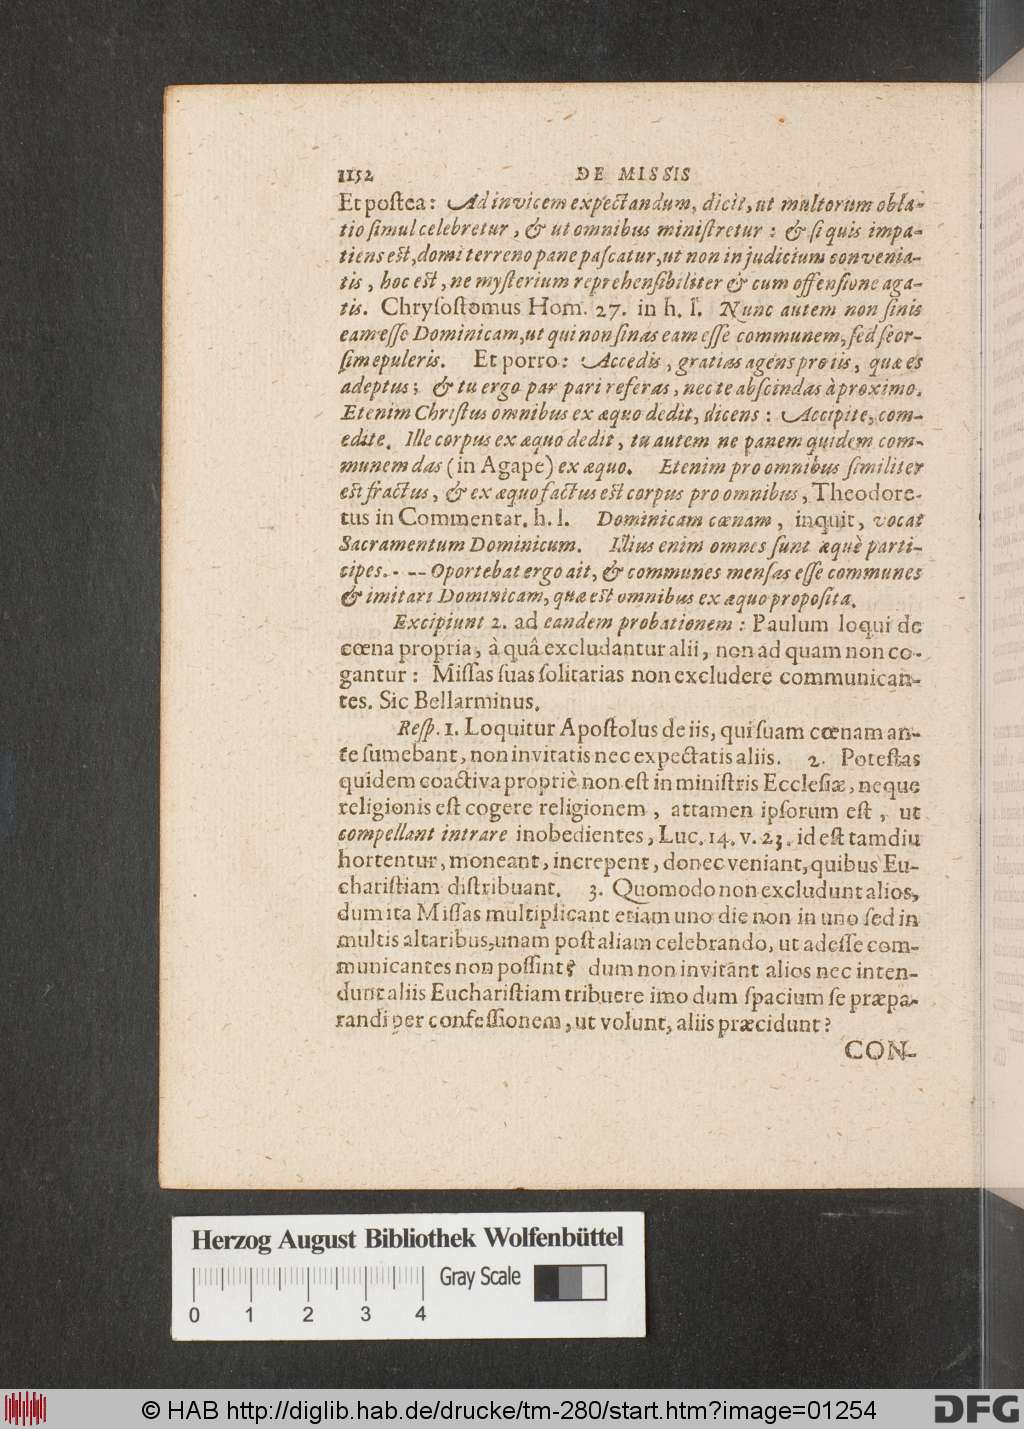 1152 DE MISSIS
Et poſtea: Ad invicem expectandum, dicit, ut multorum obla-
tio ſimul celebretur, & ut omnibus miniſtretur: & ſi quis impa-
tiens est, domi terreno pane paſcatur, ut non in judicium convenia-
tis, hoc est, ne myſterium reprehenſibiliter & cum offenſione aga-
tis. Chryſoſtomus Hom. 27. in h. l. Nunc autem non ſinis
eam eſſe Dominicam, ut qui non ſinas eam eſſe communem, ſed ſeor-
ſim epuleris. Et porro: Accedis, gratias agens pro iis, quæ es
adeptus; & tu ergo par pari referas, nec te abſcindas à proximo.
Etenim Chriſtus omnibus ex æquo dedit, dicens: Accipite, com-
edite. Ille corpus ex æquo dedit, tu autem ne panem quidem com-
munem das (in Agape) ex æquo. Etenim pro omnibus ſimiliter
est fractus, & ex æquo factus est corpus pro omnibus, Theodore-
tus in Commentar. h. l. Dominicam cœnam, inquit, vocat
Sacramentum Dominicum. Illius enim omnes ſunt æquè parti-
cipes. - -- Oportebat ergo ait, & communes menſas eſſe communes
& imitari Dominicam, quæ est omnibus ex æquo propoſita.
Excipiunt 2. ad eandem probationem: Paulum loqui de
cœna propria, à quâ excludantur alii, non ad quam non co-
gantur: Miſſas ſuas ſolitarias non excludere communican-
tes. Sic Bellarminus.
Reſp. 1. Loquitur Apoſtolus de iis, qui ſuam cœnam an-
te ſumebant, non invitatis nec expectatis aliis. 2. Poteſtas
quidem coactiva propriè non eſt in miniſtris Eccleſiæ, neque
religionis eſt cogere religionem, attamen ipſorum eſt, ut
compellant intrare inobedientes, Luc. 14. v. 23. id eſt tamdiu
hortentur, moneant, increpent, donec veniant, quibus Eu-
chariſtiam diſtribuant. 3. Quomodo non excludunt alios,
dum ita Miſſas multiplicant etiam uno die non in uno ſed in
multis altaribus, unam poſt aliam celebrando, ut adeſſe com-
municantes non poſſint? dum non invitant alios nec inten-
dunt aliis Euchariſtiam tribuere imo dum ſpacium ſe præpa-
randi per confeſſionem, ut volunt, aliis præcidunt?
CON-
Herzog August Bibliothek Wolfenbüttel
Gray Scale
0 1 2 3 4
© HAB http://diglib.hab.de/drucke/tm-280/start.htm?image=01254
DFG